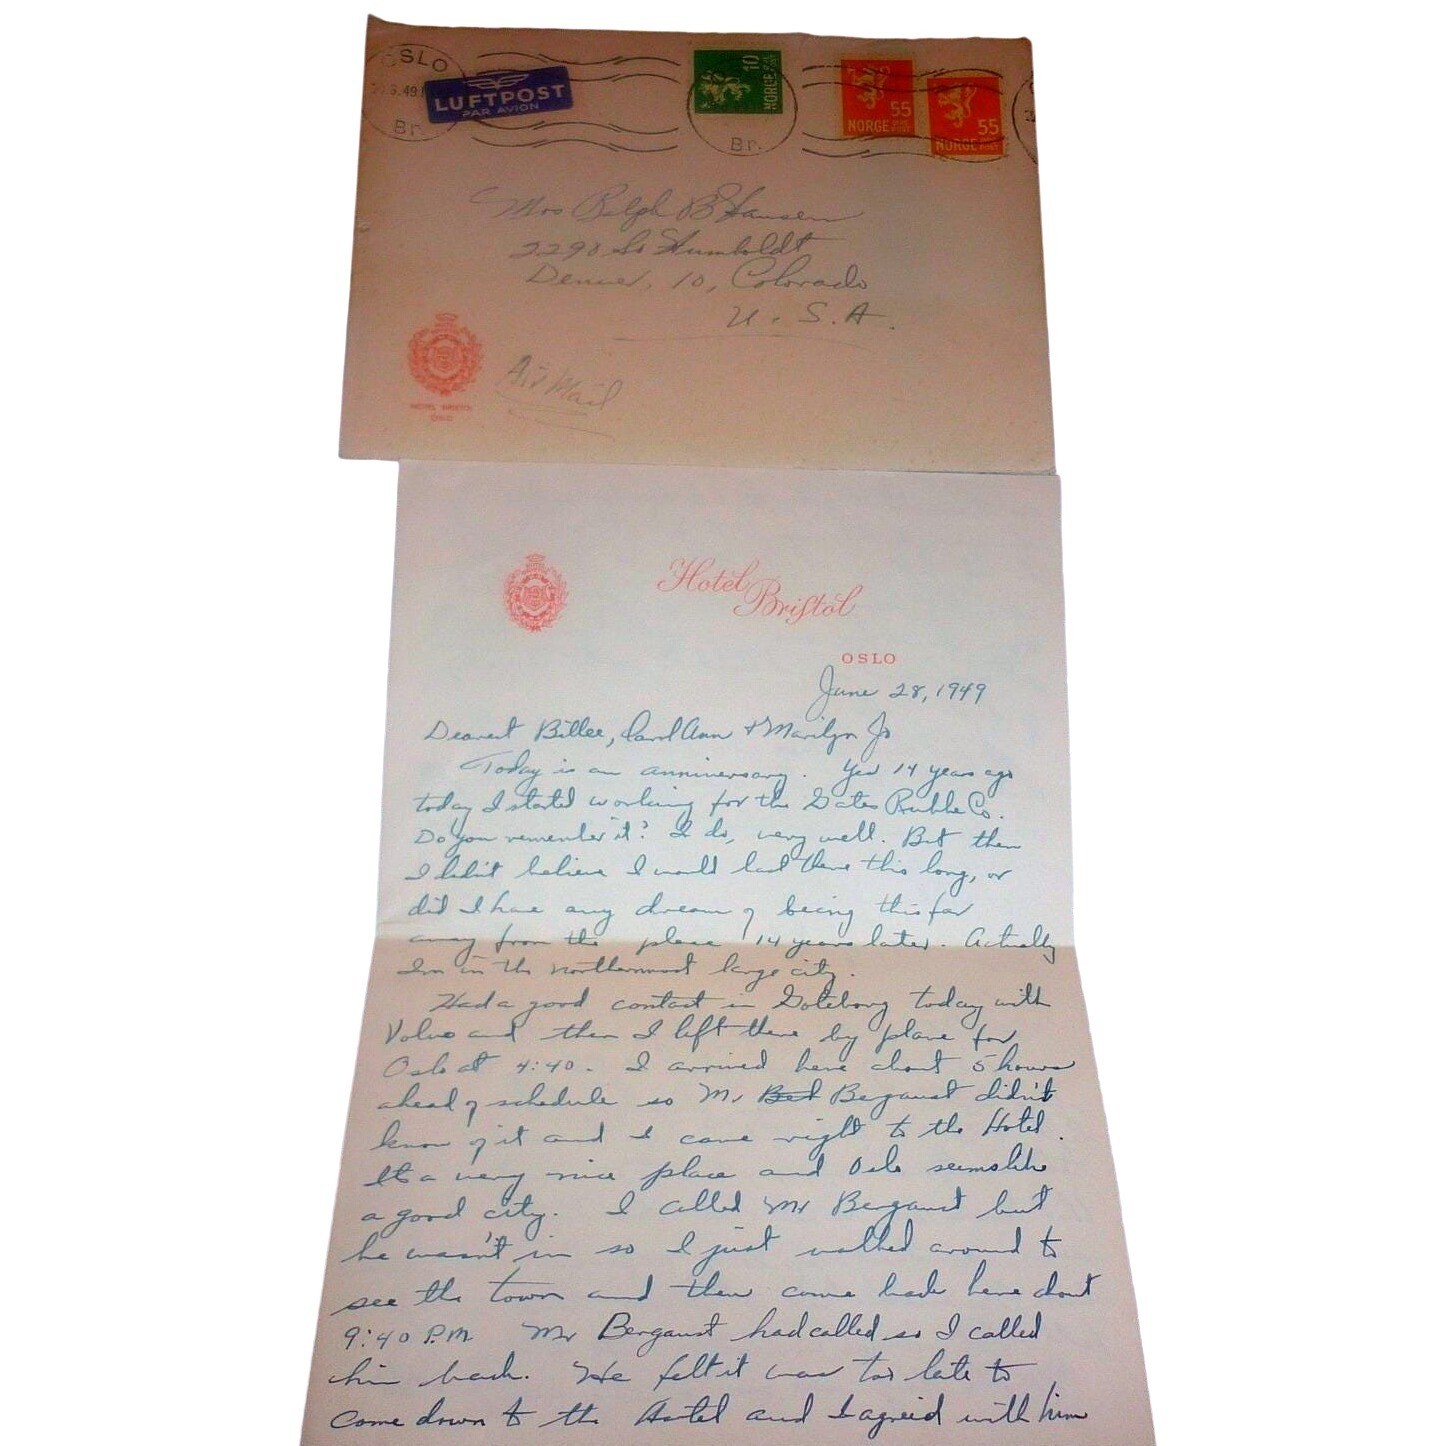 OSLO
49
Br.
LUFTPOST
PAR AVION
10
NORGE
Br.
55
NORGE
55
NORGE
Mrs Ralph B Hansen
2290 So Humboldt
Denver, 10, Colorado
U. S. A.
Air Mail
HOTEL BRISTOL
OSLO
Hotel
Bristol
OSLO
June 28, 1949
Dearest Billee, Carol Ann + Marilyn Jo
Today is an anniversary. Yes 14 years ago
today I started working for the Gates Rubber Co.
Do you remember it? I do, very well. But then
I didn't believe I would last there this long, or
did I have any dream of being this far
away from the place 14 years later. Actually
I'm in the northernmost large city.
Had a good contact in Goteborg today with
Volvo and then I left there by plane for
Oslo at 4:40. I arrived here about 5 hours
ahead of schedule so Mr Bergaust didn't
know of it and I came right to the Hotel.
It's a very nice place and Oslo seems like
a good city. I called Mr Bergaust but
he wasn't in so I just walked around to
see the town and then came back here about
9:40 P.M. Mr Bergaust had called so I called
him back. He felt it was too late to
come down to the Hotel and I agreed with him